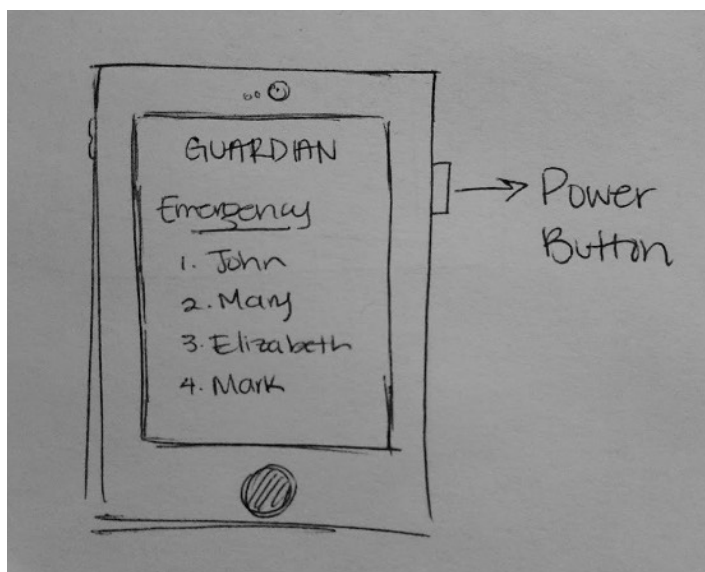 GUARDIAN
Emergency
1. John
2. Mary
3. Elizabeth
4. Mark
Power
Button